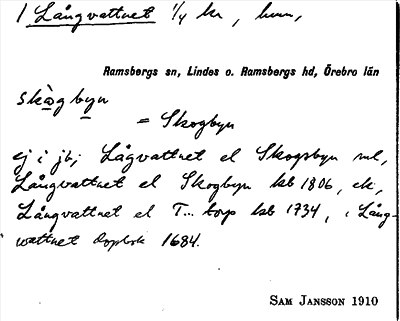 1 Långvattnet 1/4 kr, hmn,
Ramsbergs sn, Lindes o. Ramsbergs hd, Örebro län
skògbyn
= Skogbyn
ej i jb; Lågvattnet el Skogsbyn ml,
Långvattnet el Skogbyn hb 1806, ek,
Långvattnet el T... torp hb 1734, i Lång-
wattnet dopbok 1684.
SAM JANSSON 1910